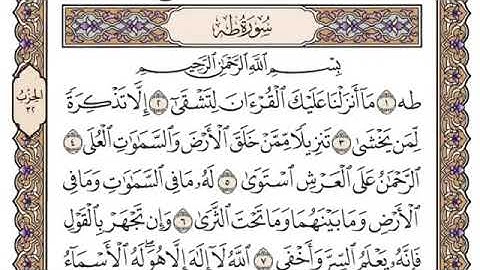 سُورَةُ طه
بِسْمِ ٱللَّهِ ٱلرَّحْمَٰنِ ٱلرَّحِيمِ
طه ١ مَآ أَنزَلْنَا عَلَيْكَ ٱلْقُرْءَانَ لِتَشْقَىٰٓ ٢ إِلَّا تَذْكِرَةً
لِّمَن يَخْشَىٰ ٣ تَنزِيلًا مِّمَّنْ خَلَقَ ٱلْأَرْضَ وَٱلسَّمَٰوَٰتِ ٱلْعُلَى ٤
ٱلرَّحْمَٰنُ عَلَى ٱلْعَرْشِ ٱسْتَوَىٰ ٥ لَهُۥ مَا فِى ٱلسَّمَٰوَٰتِ وَمَا فِى
ٱلْأَرْضِ وَمَا بَيْنَهُمَا وَمَا تَحْتَ ٱلثَّرَىٰ ٦ وَإِن تَجْهَرْ بِٱلْقَوْلِ
فَإِنَّهُۥ يَعْلَمُ ٱلسِّرَّ وَأَخْفَى ٧ ٱللَّهُ لَآ إِلَٰهَ إِلَّا هُوَ ۖ لَهُ ٱلْأَسْمَآءُ
الحِزْب
٣٢